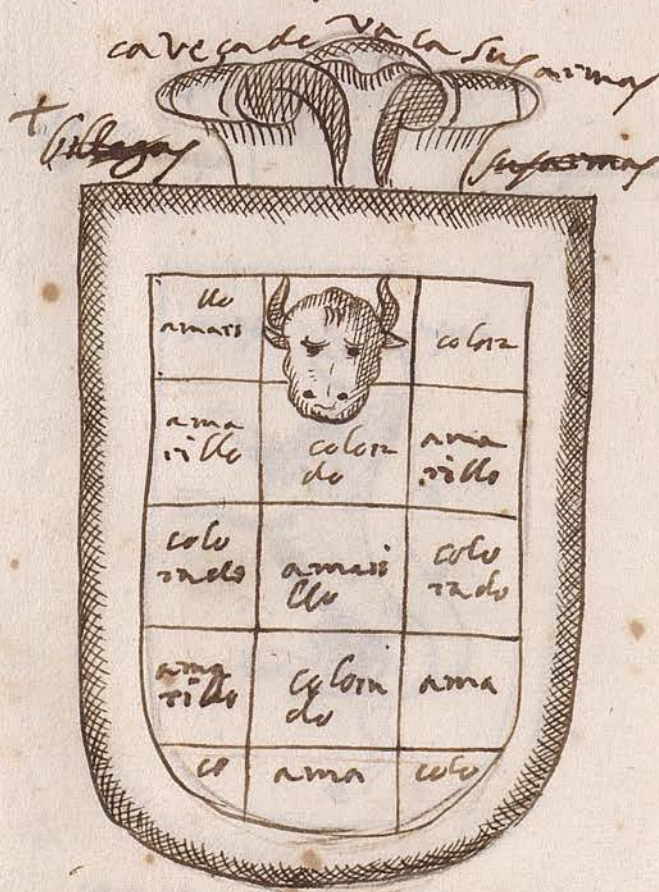 caveça de vaca sus armas
+
amari
llo
colora
ama
rillo
colora
do
ama
rillo
colo
rado
amari
llo
colo
rado
ama
rillo
colora
do
ama
co
ama
colo